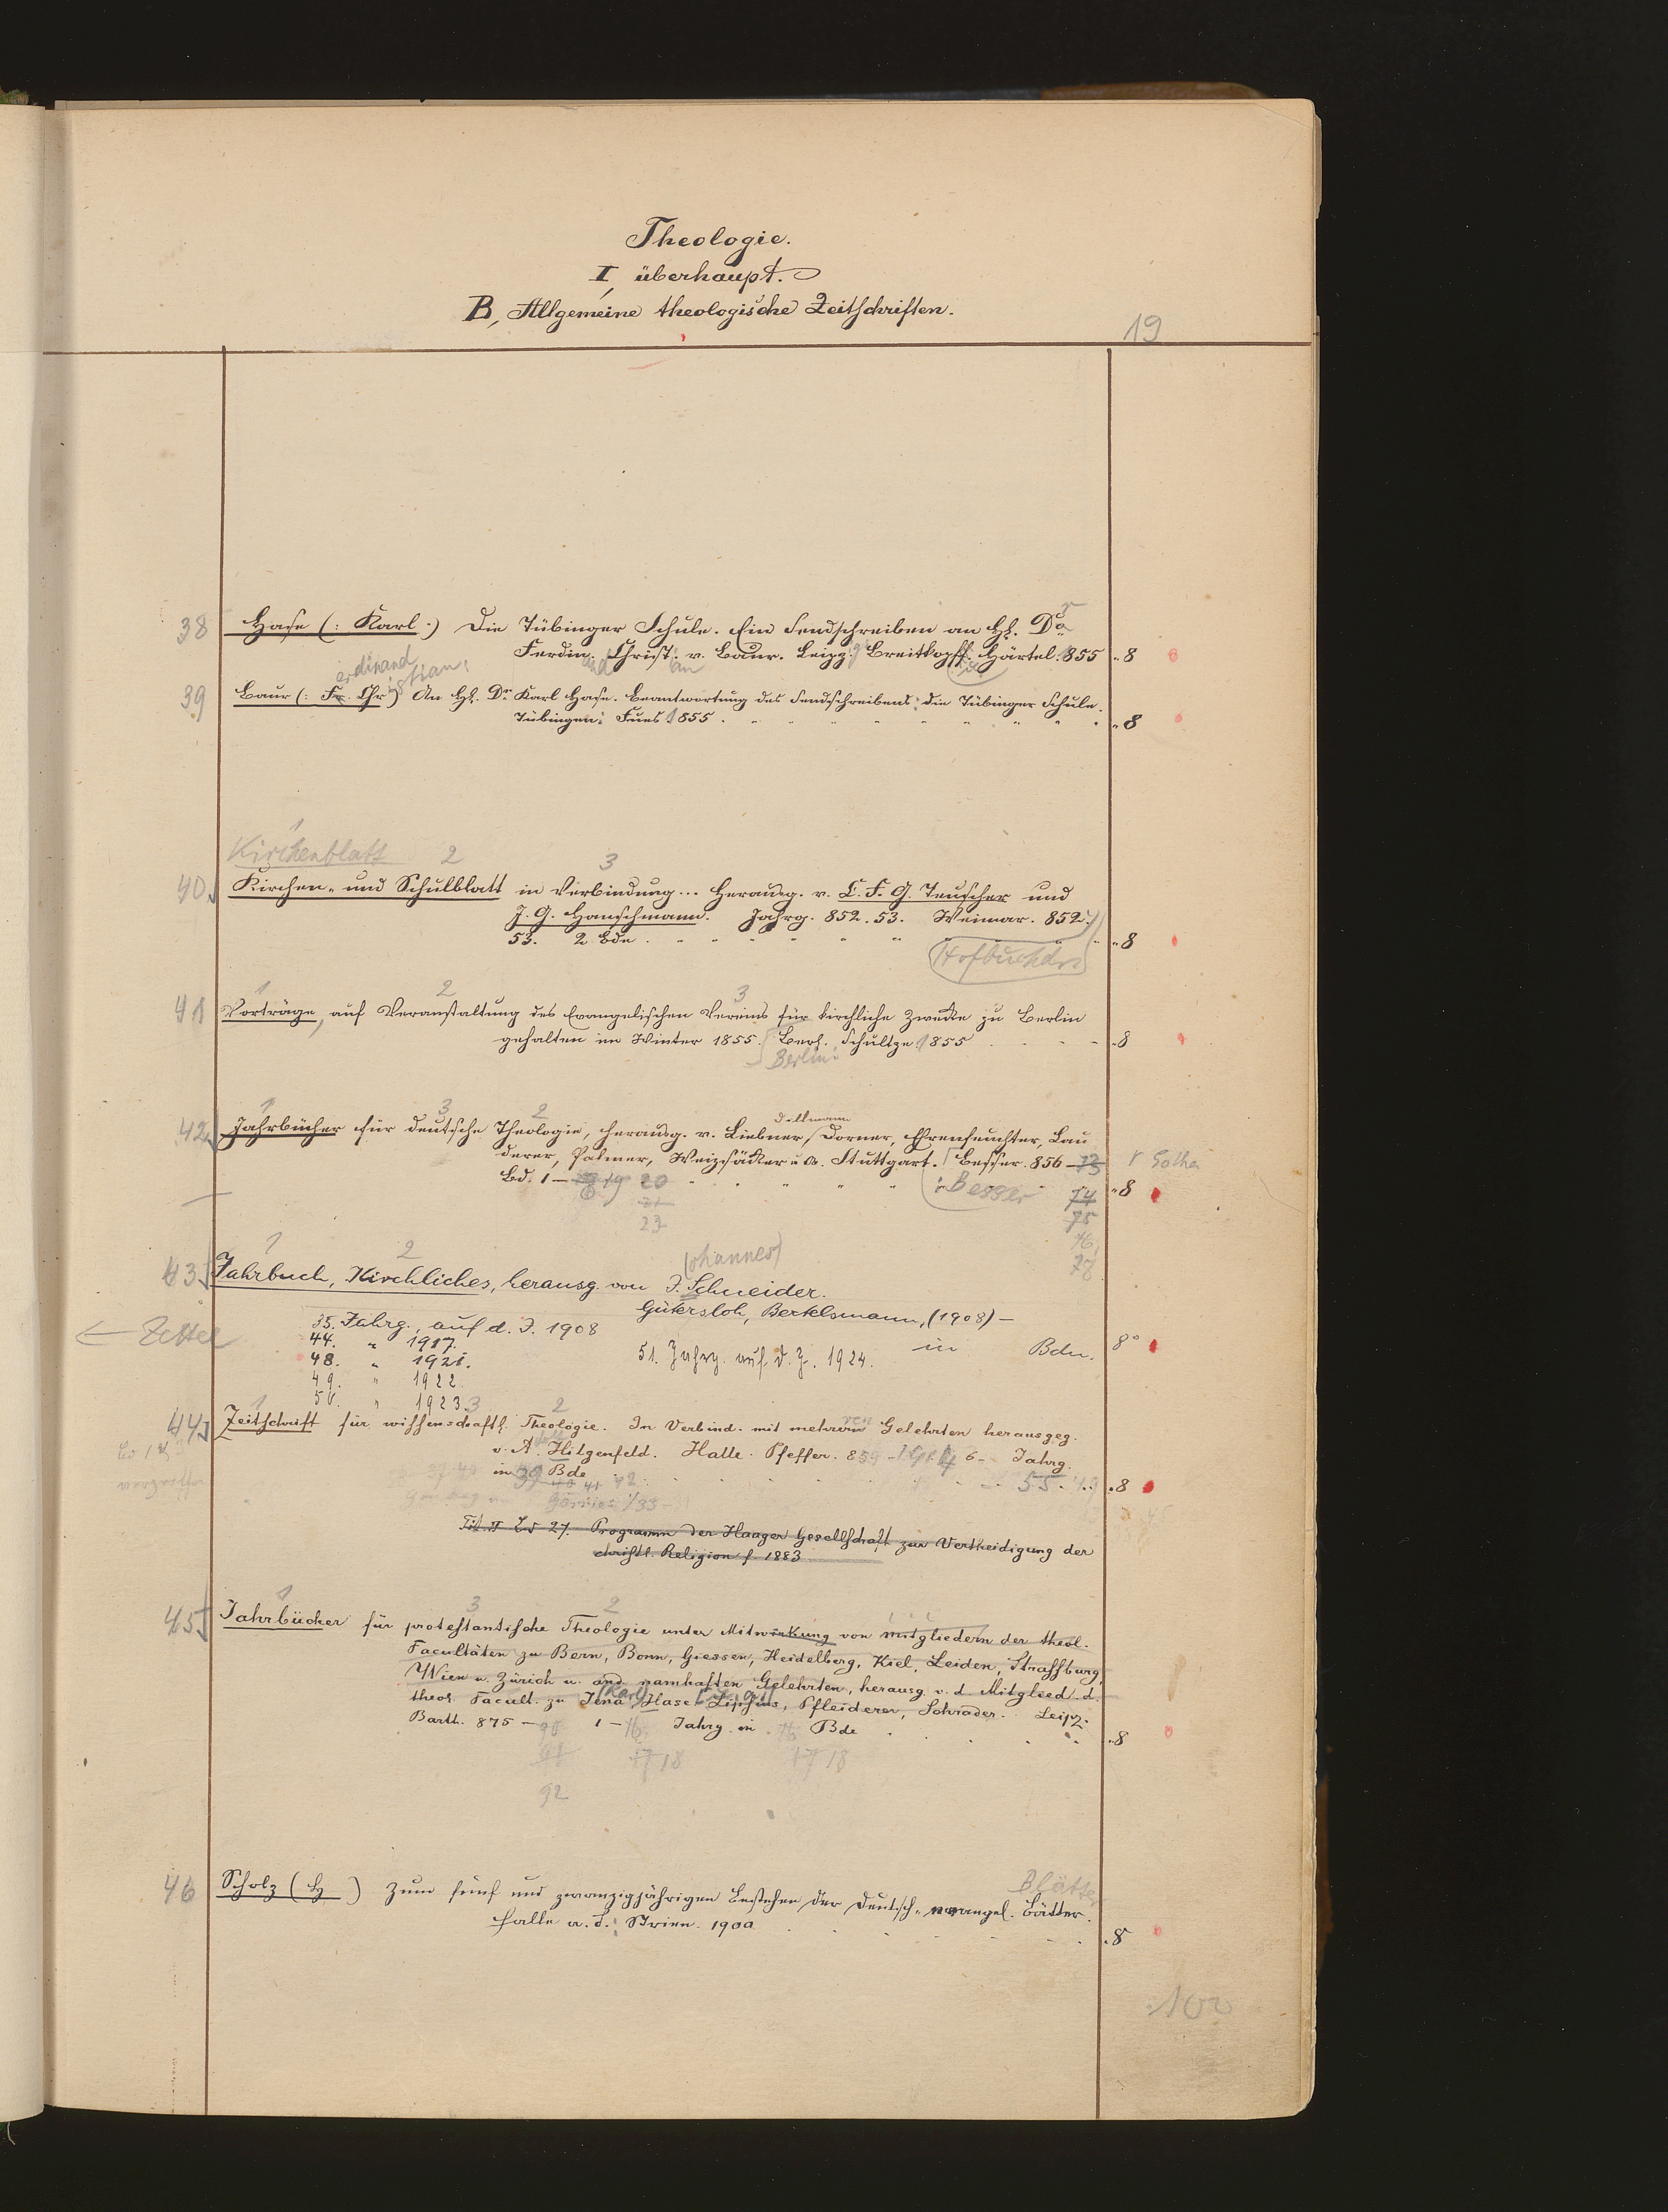 Theologie.
I, überhaupt.
B, Allgemeine theologische Zeitschriften.
19
38 Hase (: Karl :) Die Tübinger Schule. Ein Sendschreiben an H. Dr
Ferdin. Christ. v. Baur. Leipz. Breitkopf. Härtel. 1855 8
erdinand istian
39 Baur (: Fr. Chr.) An H. Dr. Karl Hase. Beantwortung des Sendschreibens: die Tübinger Schule.
Tübingen: Fues 1855. 8
1
Kirchenblatt 2 3
40 Kirchen- und Schulblatt in Verbindung... herausg. v. C. F. G. Teuscher und
J. G. Hanschmann. Jahrg. 852. 53. Weimar. 852.
53. 2 Bde. 8
Hofbuchdr
1 2 3
41 Vorträge, auf Veranstaltung des Evangelischen Vereins für kirchliche Zwecke zu Berlin
gehalten im Winter 1855. Berl. Schultze 1855 8
Berlin:
1 3 2 Dillmann
42 Jahrbücher für deutsche Theologie, herausg. v. Liebner, Dorner, Ehrenfeuchter, Lan
derer, Palmer, Weizsäcker u. A. Stuttgart. Besser. 856-73 Gotha
Bd. 1 - 19 20 Besser 74 8
21 75
23 76,
78
1 2 (ohannes)
43 Jahrbuch, Kirchliches, herausg. von J. Schneider.
Gütersloh, Bertelsmann, (1908) -
35. Jahrg., auf d. J. 1908
← Zettel
44. " 1917.
48. " 1921. 51. Jahrg. auf d. J. 1924. in Bdn. 8°
49. " 1922
50. " 1923.
1 3 2
44 Zeitschrift für wissenschaftl. Theologie. In Verbind. mit mehreren Gelehrten herausgeg.
v. A. Hilgenfeld. Halle. Pfeffer. 859 - 6 - Jahrg.
in 39 Bde 55. 8
40 41 42
Tit. Bd 27. Programm der Haager Gesellschaft zur Vertheidigung der
christl. Religion f. 1883
1 3 2
45 Jahrbücher für protestantische Theologie unter Mitwirkung von Mitgliedern der theol.
Facultäten zu Bern, Bonn, Giessen, Heidelberg, Kiel, Leiden, Strassburg,
Wien u. Zürich u. and. namhaften Gelehrten, herausg. v. d. Mitglied. d.
(Karl)
theol. Facult. zu Jena, Hase, Lipsius, Pfleiderer, Schrader. Leipz.
Barth. 875 - 90 1 - 16 Jahrg. in 16 Bde 8
91 17 18 17 18
92
Blätter
46 Scholz (H ) Zum fünf und zwanzigjährigen Bestehen der Deutsch-evangel. Bätter.
Halle a. S.: Strien. 1900 8
102